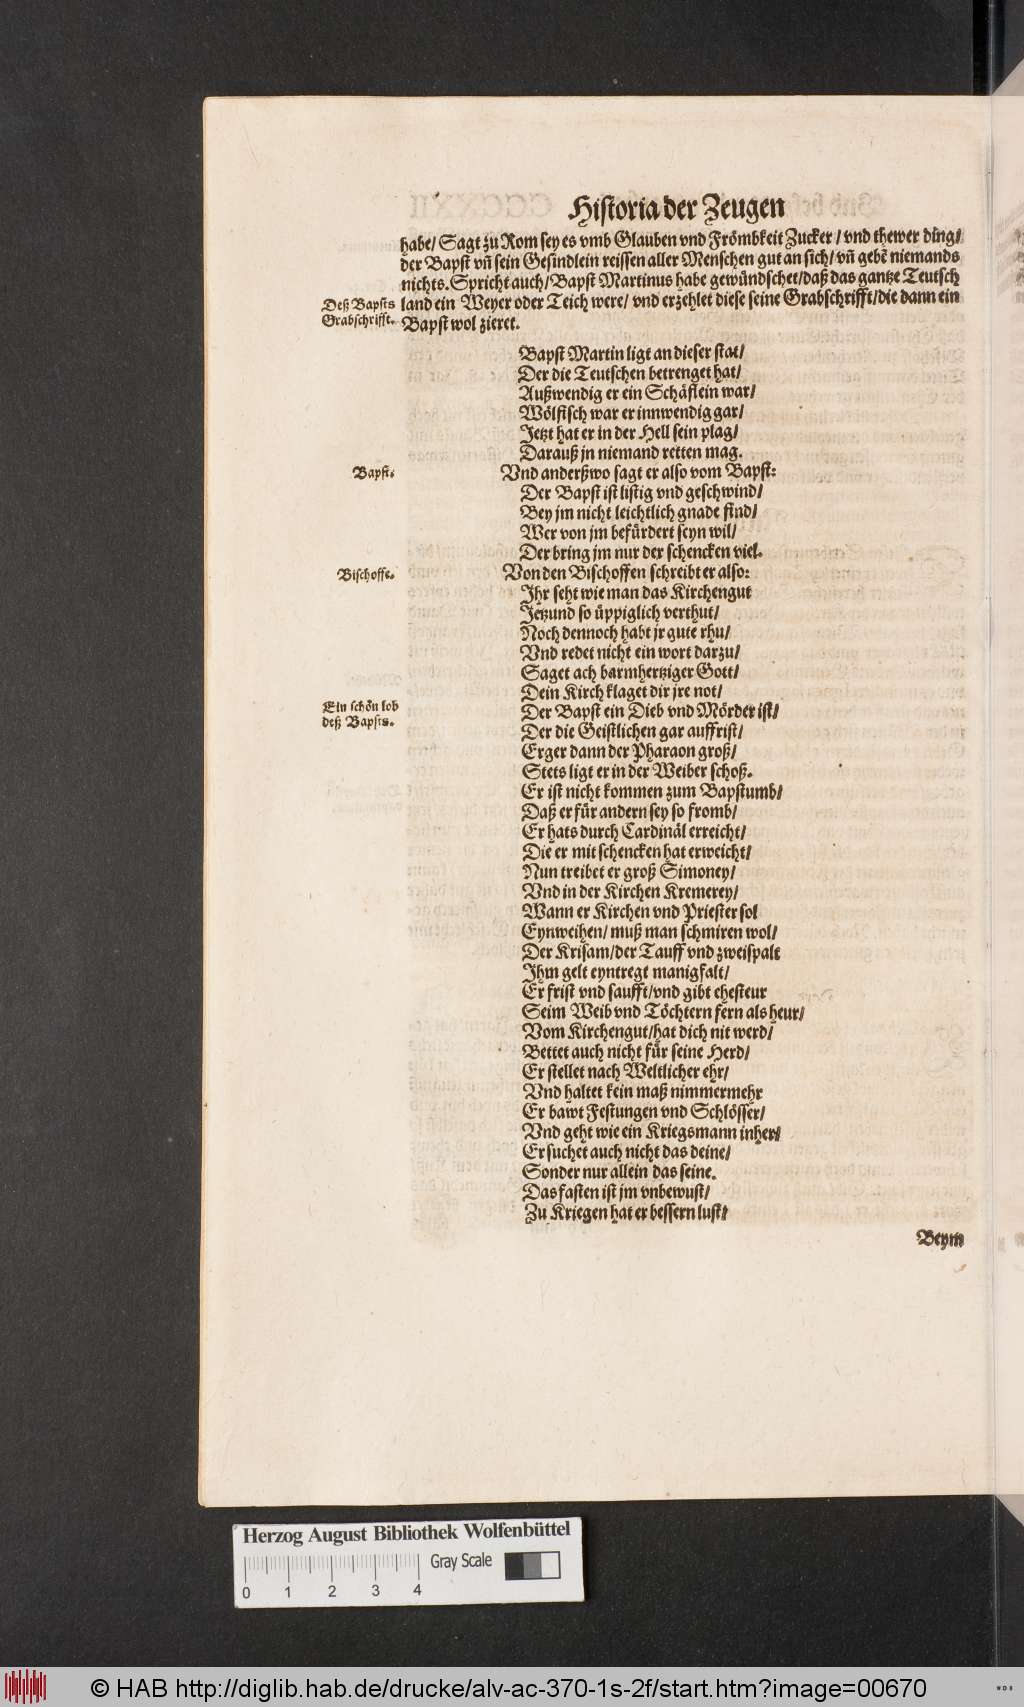 Historia der Zeugen
habe/ Sagt zu Rom sey es vmb Glauben vnd Frömbkeit Zucker / vnd thewer ding/
der Bapst vñ sein Gesindlein reissen aller Menschen gut an sich/ vñ gebē niemands
nichts. Spricht auch/ Bapst Martinus habe gewündschet/ daß das gantze Teutsch
Deß Bapsts
Grabschrifft.
land ein Weyer oder Teich were/ vnd erzehlet diese seine Grabschrifft/ die dann ein
Bapst wol zieret.
Bapst Martin ligt an dieser stat/
Der die Teutschen betrenget hat/
Außwendig er ein Schäflein war/
Wölfisch war er innwendig gar/
Jetzt hat er in der Hell sein plag/
Darauß jn niemand retten mag.
Bapst.
Vnd anderßwo sagt er also vom Bapst:
Der Bapst ist listig vnd geschwind/
Bey jm nicht leichtlich gnade find/
Wer von jm befürdert seyn wil/
Der bring jm nur der schencken viel.
Bischoffe.
Von den Bischoffen schreibt er also:
Ihr seht wie man das Kirchengut
Jetzund so üppiglich verthut/
Noch dennoch habt jr gute rhu/
Vnd redet nicht ein wort darzu/
Saget ach barmhertziger Gott/
Dein Kirch klaget dir jre not/
Ein schön lob
deß Bapsts.
Der Bapst ein Dieb vnd Mörder ist/
Der die Geistlichen gar auffrist/
Erger dann der Pharaon groß/
Stets ligt er in der Weiber schoß.
Er ist nicht kommen zum Bapstumb/
Daß er für andern sey so fromb/
Er hats durch Cardinäl erreicht/
Die er mit schencken hat erweicht/
Nun treibet er groß Simoney/
Vnd in der Kirchen Kremerey/
Wann er Kirchen vnd Priester sol
Eynweihen/ muß man schmiren wol/
Der Krisam/ der Tauff vnd zweispalt
Ihm gelt eyntregt manigfalt/
Er frist vnd saufft/ vnd gibt ehesteur
Seim Weib vnd Töchtern fern als heur/
Vom Kirchengut/ hat dich nit werd/
Bettet auch nicht für seine Herd/
Er stellet nach Weltlicher ehr/
Vnd haltet kein maß nimmermehr
Er bawt Festungen vnd Schlösser/
Vnd geht wie ein Kriegsmann inher/
Er suchet auch nicht das deine/
Sonder nur allein das seine.
Das fasten ist jm vnbewust/
Zu Kriegen hat er bessern lust/
Beym
Herzog August Bibliothek Wolfenbüttel
Gray Scale
0 1 2 3 4
© HAB http://diglib.hab.de/drucke/alv-ac-370-1s-2f/start.htm?image=00670